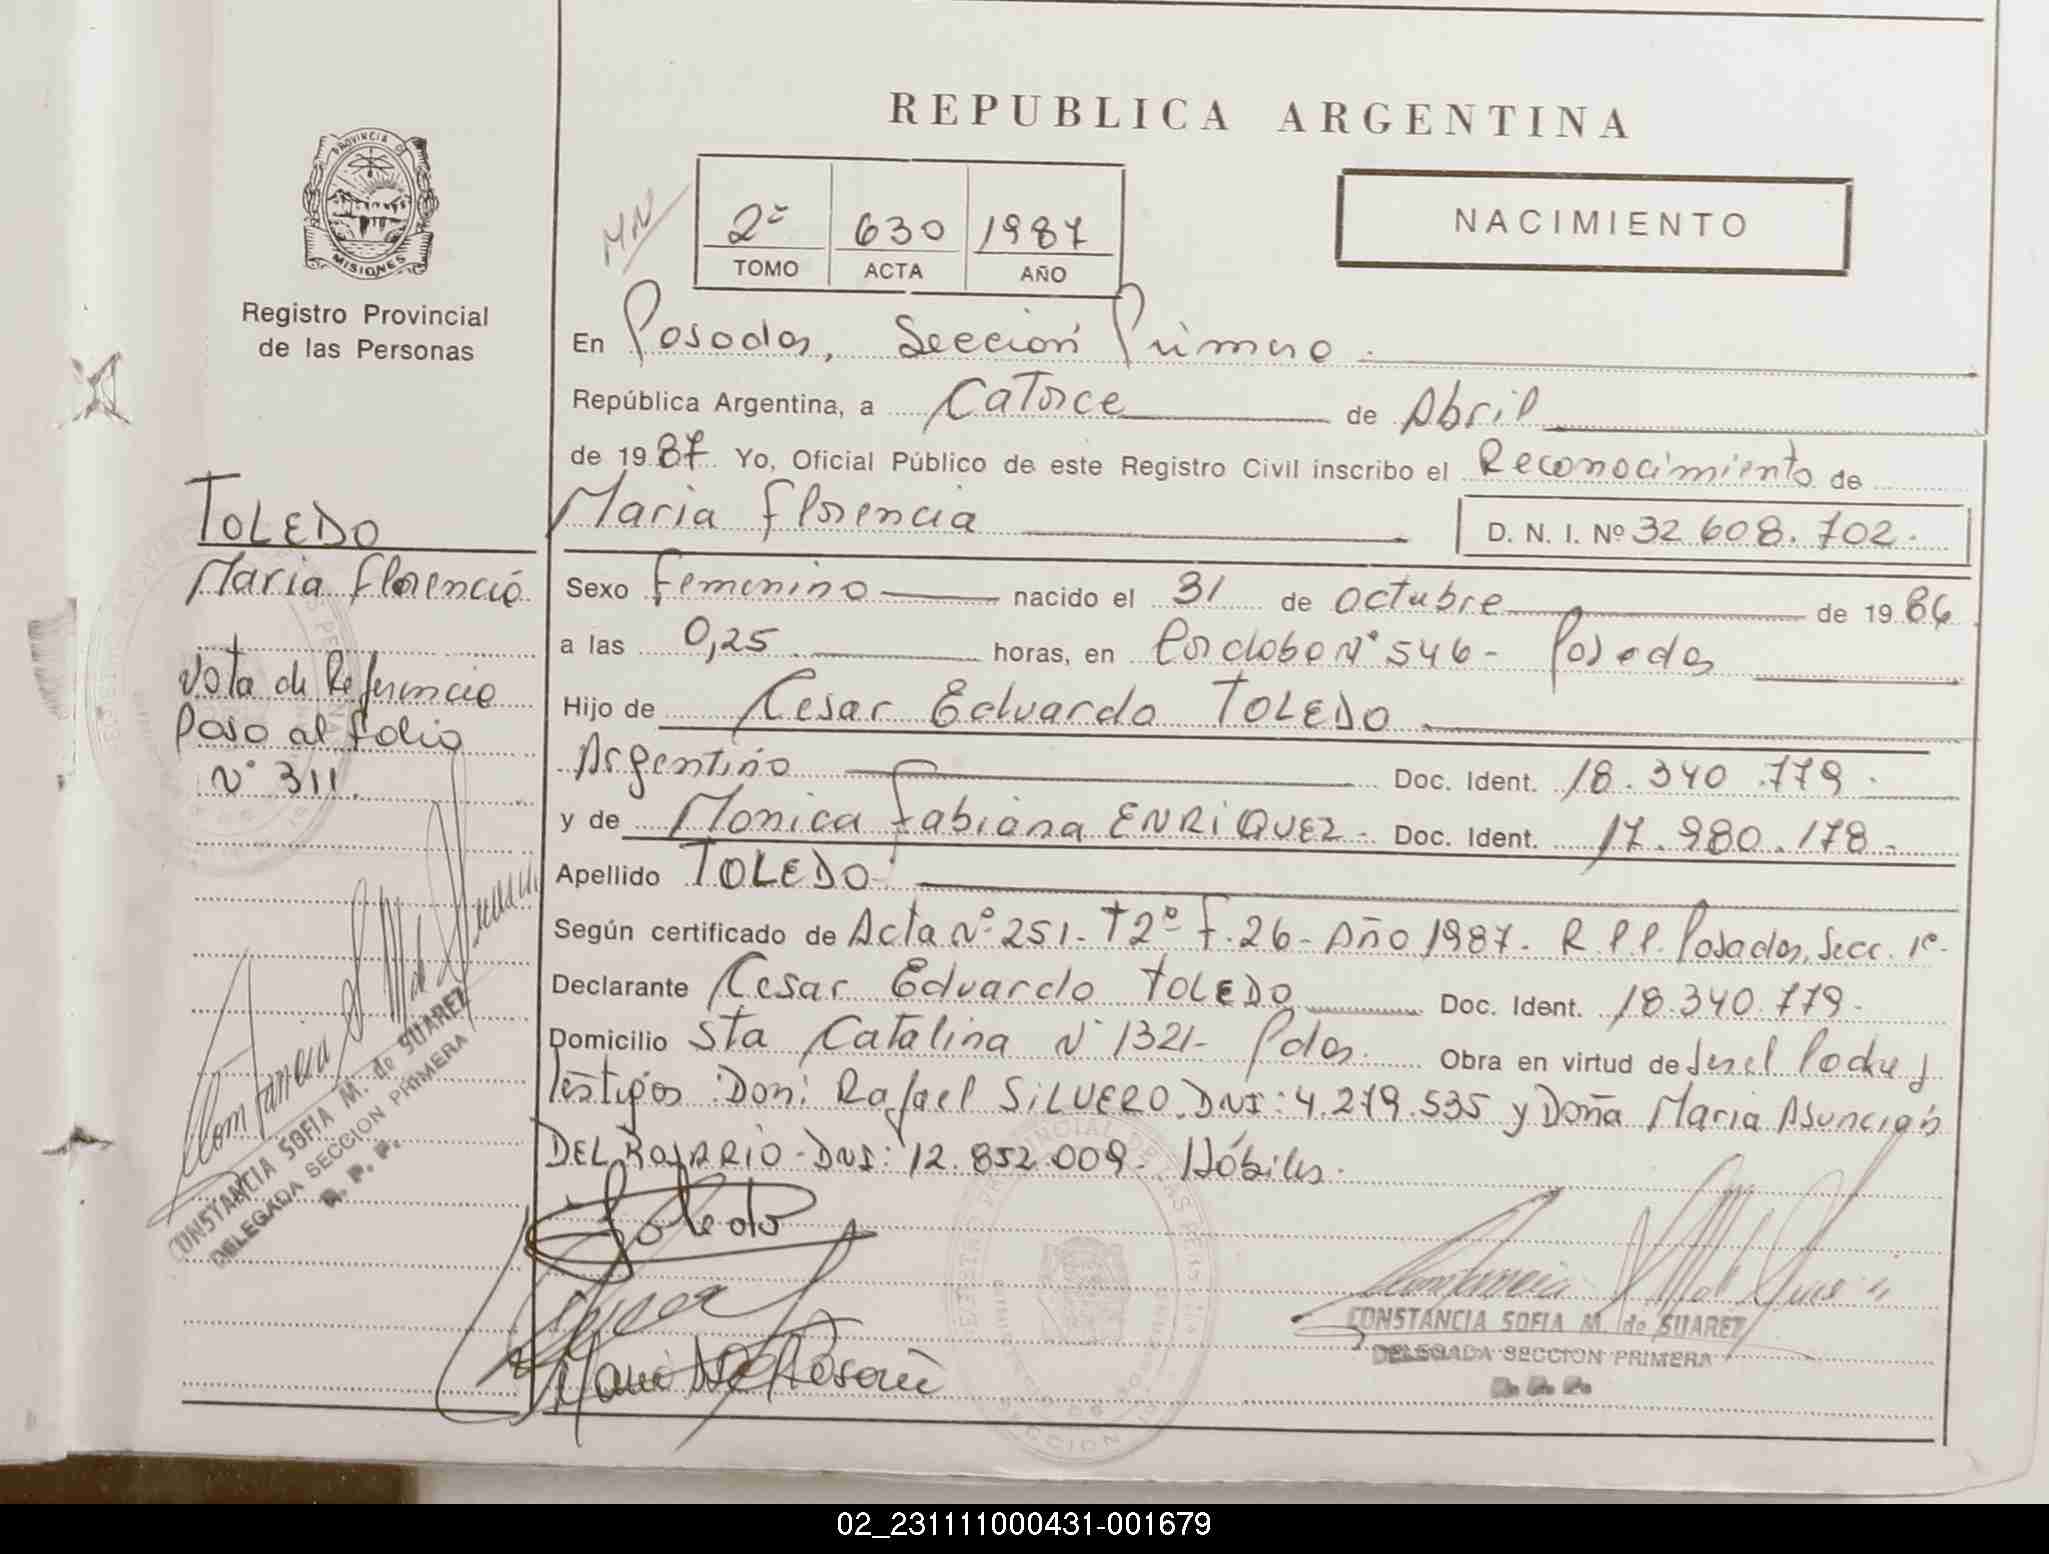 REPUBLICA ARGENTINA
PROVINCIA DE
MISIONES
Registro Provincial
de las Personas
2º 630 1987
TOMO ACTA AÑO
NACIMIENTO
En Posadas, Sección Primera.
República Argentina, a Catorce de Abril
de 1987 Yo, Oficial Público de este Registro Civil inscribo el Reconocimiento de
Maria Florencia D. N. I. Nº 32.608.702.
TOLEDO
Maria Florencia
Nota de Referencia
Paso al folio
Nº 311.
Sexo Femenino nacido el 31 de octubre de 1986
a las 0,25 horas, en Cordoba Nº 546 - Posadas
Hijo de Cesar Eduardo TOLEDO
Argentino Doc. Ident. 18.340.779.
y de Monica Fabiana ENRIQUEZ - Doc. Ident. 17.980.178 -
Apellido TOLEDO
Según certificado de Acta Nº 251 - Tº 2º F. 26 - Año 1987. R.P.P. Posadas, Secc. 1º -
Declarante Cesar Eduardo TOLEDO Doc. Ident. 18.340.779 -
Domicilio Sta Catalina Nº 1321 - Pdas. Obra en virtud de Ser el Padre y
Testigos: Don: Rafael SILVERO. DNI: 4.279.535 y Doña Maria Asunción
DEL ROSARIO - DNI: 12.852.009 - Hábiles.
Toledo
CONSTANCIA SOFIA M. de SUAREZ
DELEGADA SECCION PRIMERA
R. P. P.
CONSTANCIA SOFIA M. de SUAREZ
DELEGADA SECCION PRIMERA
R. P. P.
02_231111000431-001679